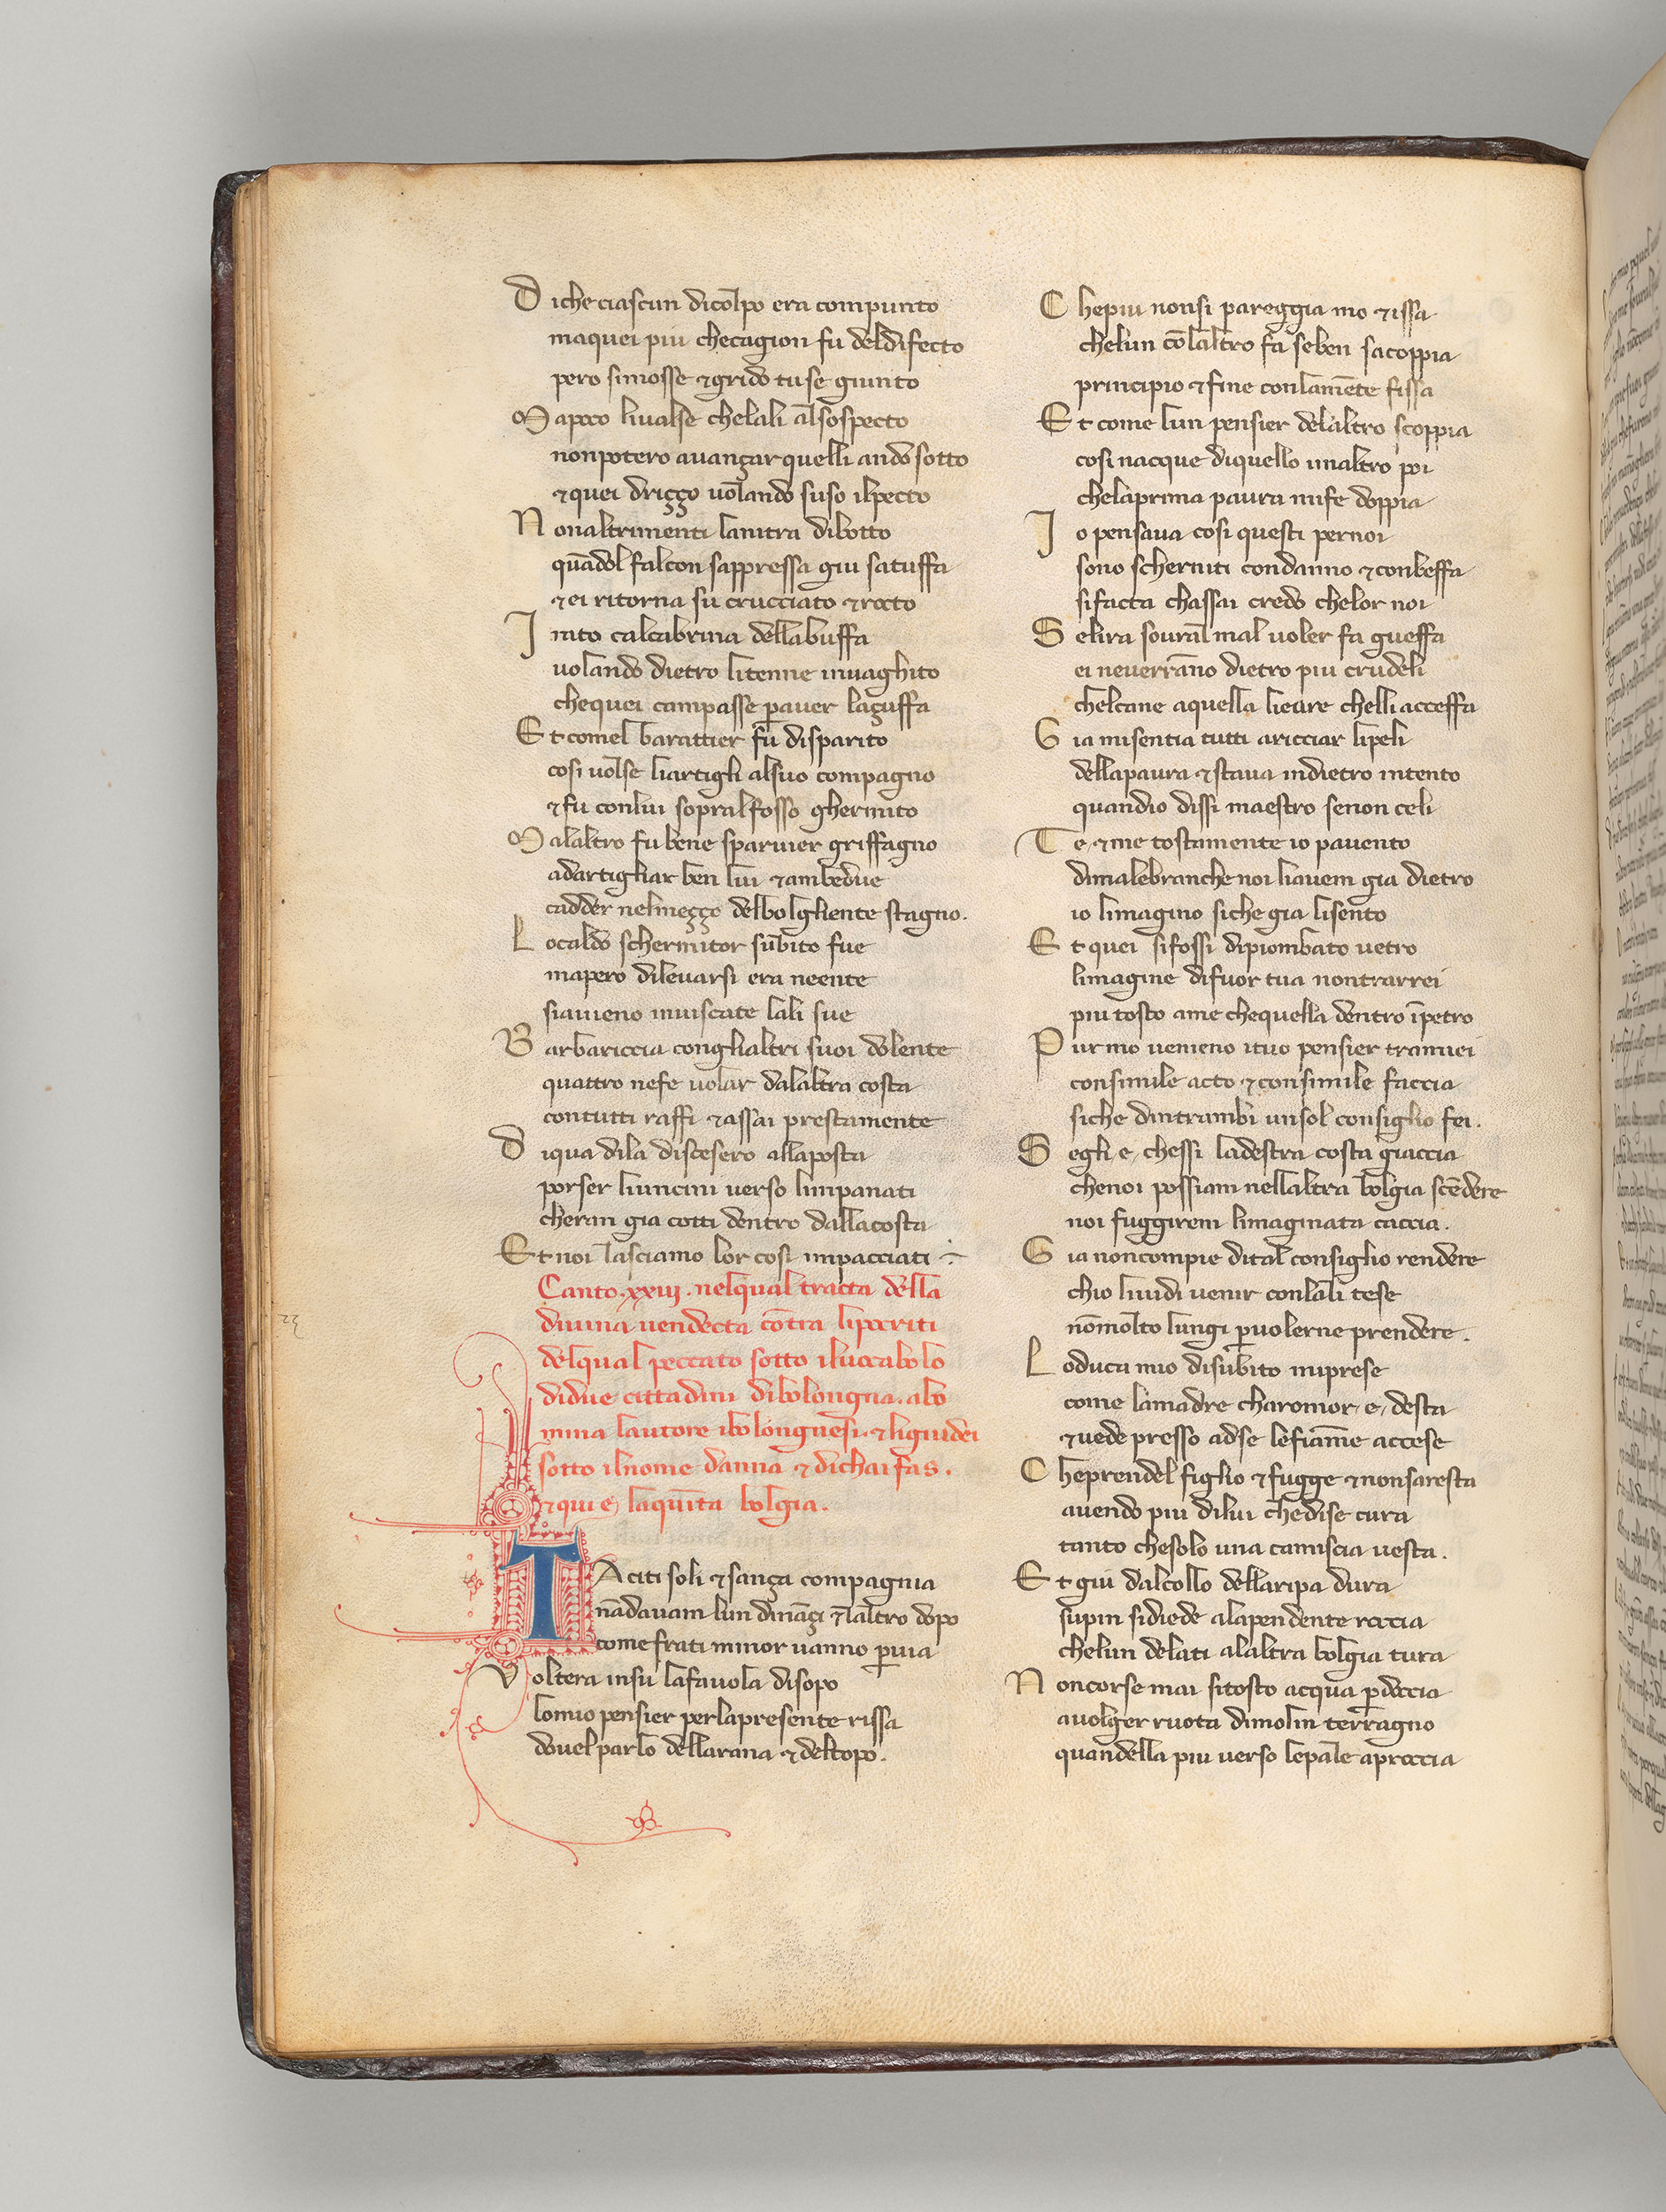 D iche ciascun dicolpo era compunto
maquei piu checagion fu deldifecto
pero simosse ⁊grido tuse giunto
M apoco livalse chelali alsospecto
nonpotero auançar quelli ando sotto
⁊quei driçço uolando suso ilpecto
N onaltrimenti lanitra dibotto
quādol falcon sappressa giu satuffa
⁊ei ritorna su crucciato ⁊rocto
I rato calcabrina dellabuffa
uolando dietro litenne inuaghito
chequei campasse ꝑauer laçuffa
E t comel barattier fu disparito
cosi uolse liartigli alsuo compagno
⁊fu conlui sopralfosso ghermito
M alaltro fu bene sparuier griffagno
adartigliar ben lui ⁊ambedue
cadder nelmeçço delbolgliente stagno.
L ocaldo schermitor subito fue
mapero dileuarsi era neente
siaueno inuiscate lali sue
B arbariccia conglialtri suoi dolente
quattro nefe uolar dalaltra costa
contutti raffi ⁊assai prestamente
D iqua dila discesero allaposta
porser liuncini uerso limpanati
cheran gia cotti dentro dallacosta
E t noi lasciamo lor cosi impacciati
Canto .xxiij. nelqual tracta della
diuina uendecta cōtra lipocriti
delqual peccato sotto iluocabolo
didue cittadini dibolongna. abo
mina lautore ibolongnesi. ⁊liguidei
sotto ilnome danna ⁊ dichaifas.
⁊qui e laquīta bolgia.
T Aciti soli ⁊sança compagnia
nādauam lun dināçi ⁊laltro dopo
come frati minor uanno ꝑuia
V oltera insu lafauola disopo
lomio pensier perlapresente rissa
douel parlo dellarana ⁊deltopo.
C hepiu nonsi pareggia mo ⁊issa
chelun cōlaltro fa seben sacoppia
principio ⁊fine conlamēte fissa
E t come lun pensier delaltro scoppia
cosi nacque diquello unaltro poi
chelaprima paura mife doppia
I o pensaua cosi questi pernoi
sono scherniti condanno ⁊conbeffa
sifacta chassai credo chelor noi
S elira soural mal uoler fa gueffa
ei neuerranno dietro piu crudeli
chelcane aquella lieure chelli acceffa
G ia misentia tutti aricciar lipeli
dellapaura ⁊staua indietro intento
quandio dissi maestro senon celi
T e ⁊me tostamente io pauento
dimalebranche noi liauem gia dietro
io limagino siche gia lisento
E t quei sifossi dipiombato uetro
limagine difuor tua nontrarrei
piu tosto ame chequella dentro īpetro
P ur mo uenieno ituo pensier tramiei
consimile acto ⁊consimile faccia
siche dintrambi unsol consiglio fei.
S egli e chessi ladestra costa giaccia
chenoi possiam nellaltra bolgia scēdere
noi fuggirem limaginata caccia.
G ia noncompie dital consiglio rendere
chio liuidi uenir conlali tese
nōmolto lungi ꝑuolerne prendere.
L oduca mio disubito miprese
come lamadre charomor e desta
⁊uede presso adse lefiamme accese
C heprendel figlio ⁊fugge ⁊nonsaresta
auendo piu dilui chedise cura
tanto chesolo una camiscia uesta.
E t giu dalcollo dellaripa dura
supin sidiede alapendente roccia
chelun delati alaltra bolgia tura
N oncorse mai sitosto acqua ꝑdoccia
auolger ruota dimolin terragno
quandella piu uerso lepale aproccia